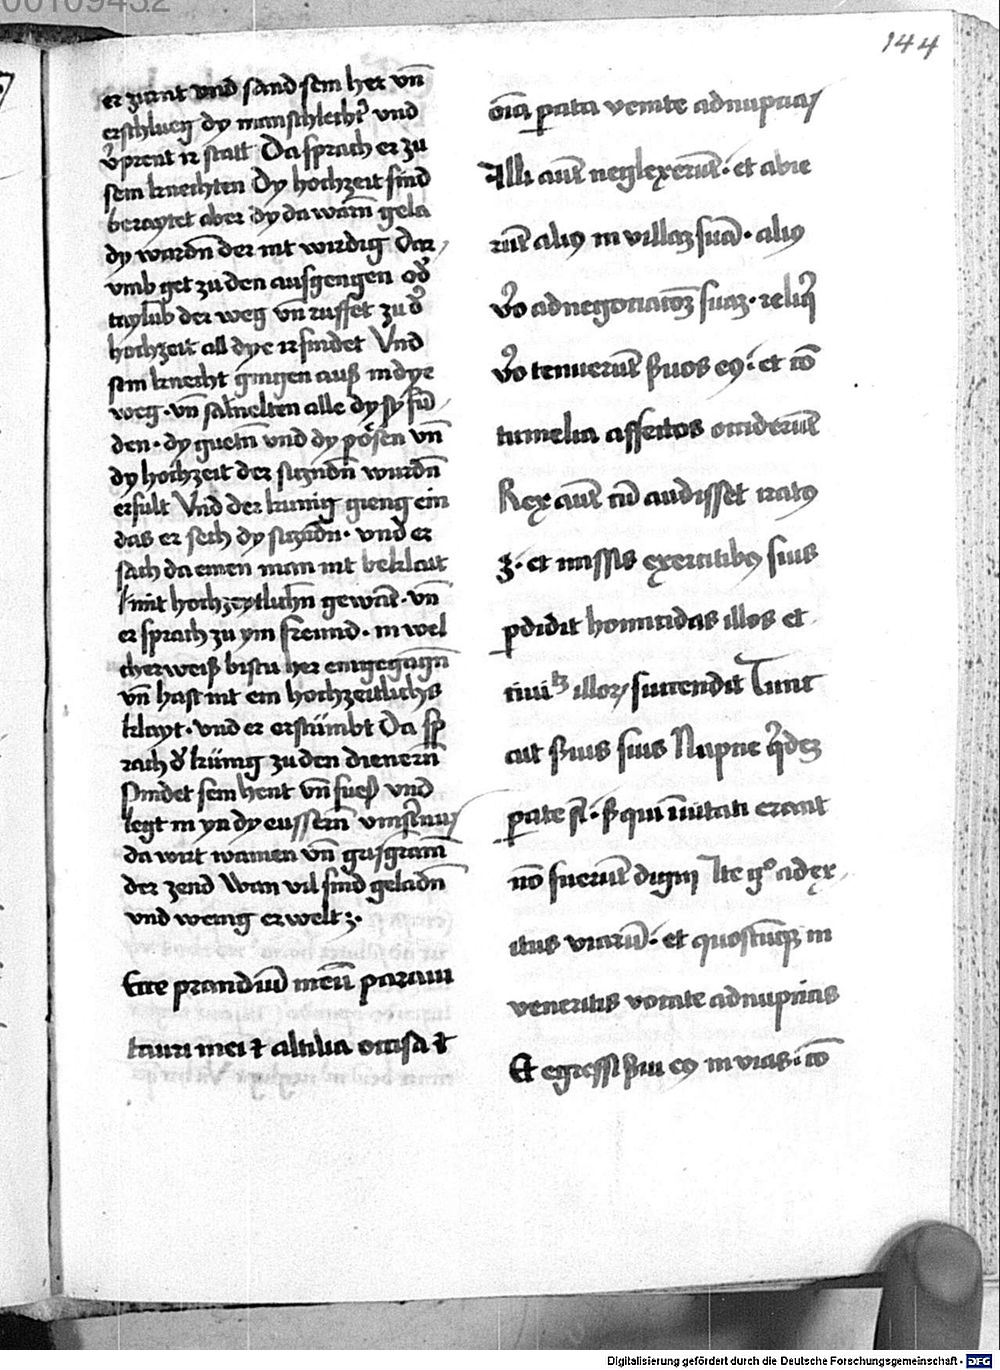 144
er zürnt vnd sand sein her vñ
erschlueg dy manschlecht̉ vnd
v̉prent ir statt Da sprach er zu
sein knechten Dy hochzeit sind
beraytet aber dy da warn̄ gela
dy wardn̄ der nit wirdig Dar
vmb get zu den ausgengen
der weg vñ rüffet zu d̉
hochzeit all dye ir findet Vnd
sein knecht gingen auß in dye
weg · vñ sam̄elten alle dy sy fūn
den · dy guetn̄ vnd dy pösen vñ
dy hochzeit der siczndn̄ wurdn̄
erfult Vnd der kunig gieng ein
das er sech dy siczndn̄ · vnd er
sach da einen man nit beklait
mit hochzeytlichn̄ gewāt · vñ
er sprach zu ym freund · in wel
cherweiß bistu her eingegagn̄
vñ hast nit ein hochzeitlichs
klayt · vnd er erstümbt Da sp
rach d̉ künig zu den dienern̄
Pindet sein hent vñ fueß vnd
legt in yn dy eussern̄ vinst̉nus
da wirt wainen vñ grisgram̄
der zend Wan vil sind geladn̄
vnd wenig erwelt z·
Ecce prandiū meū paraui
tauri mei ⁊ altilia occisa ⁊
oīa ꝑata venite ad nuptias
Illi aūt neglexerūt · et abie
rūt alius in villaꝫ suā · alius
v̉o ad negociacōꝫ suaꝫ · reliq̉
v̉o tenuerūt s̉uos eꝰ · et cō
tumelia affectos occiderūt
Rex aūt cū audisset iratꝰ
ꝫ · et missis exercitibꝰ suis
ꝑdidit homicidas illos et
ciuitꝫ illoꝝ succendit Tunc
ait s̉uis suis Nupcie q̉deꝫ
ꝑate sūt · sꝫ qui īuitati erant
nō fuerūt digni Ite gͦ ad ex
itus viarū · et quoscūqꝫ in
veneritis vocate ad nupcias
Et egressi s̉ui eꝰ in vias · cō
Digitalisierung gefördert durch die Deutsche Forschungsgemeinschaft - DFG